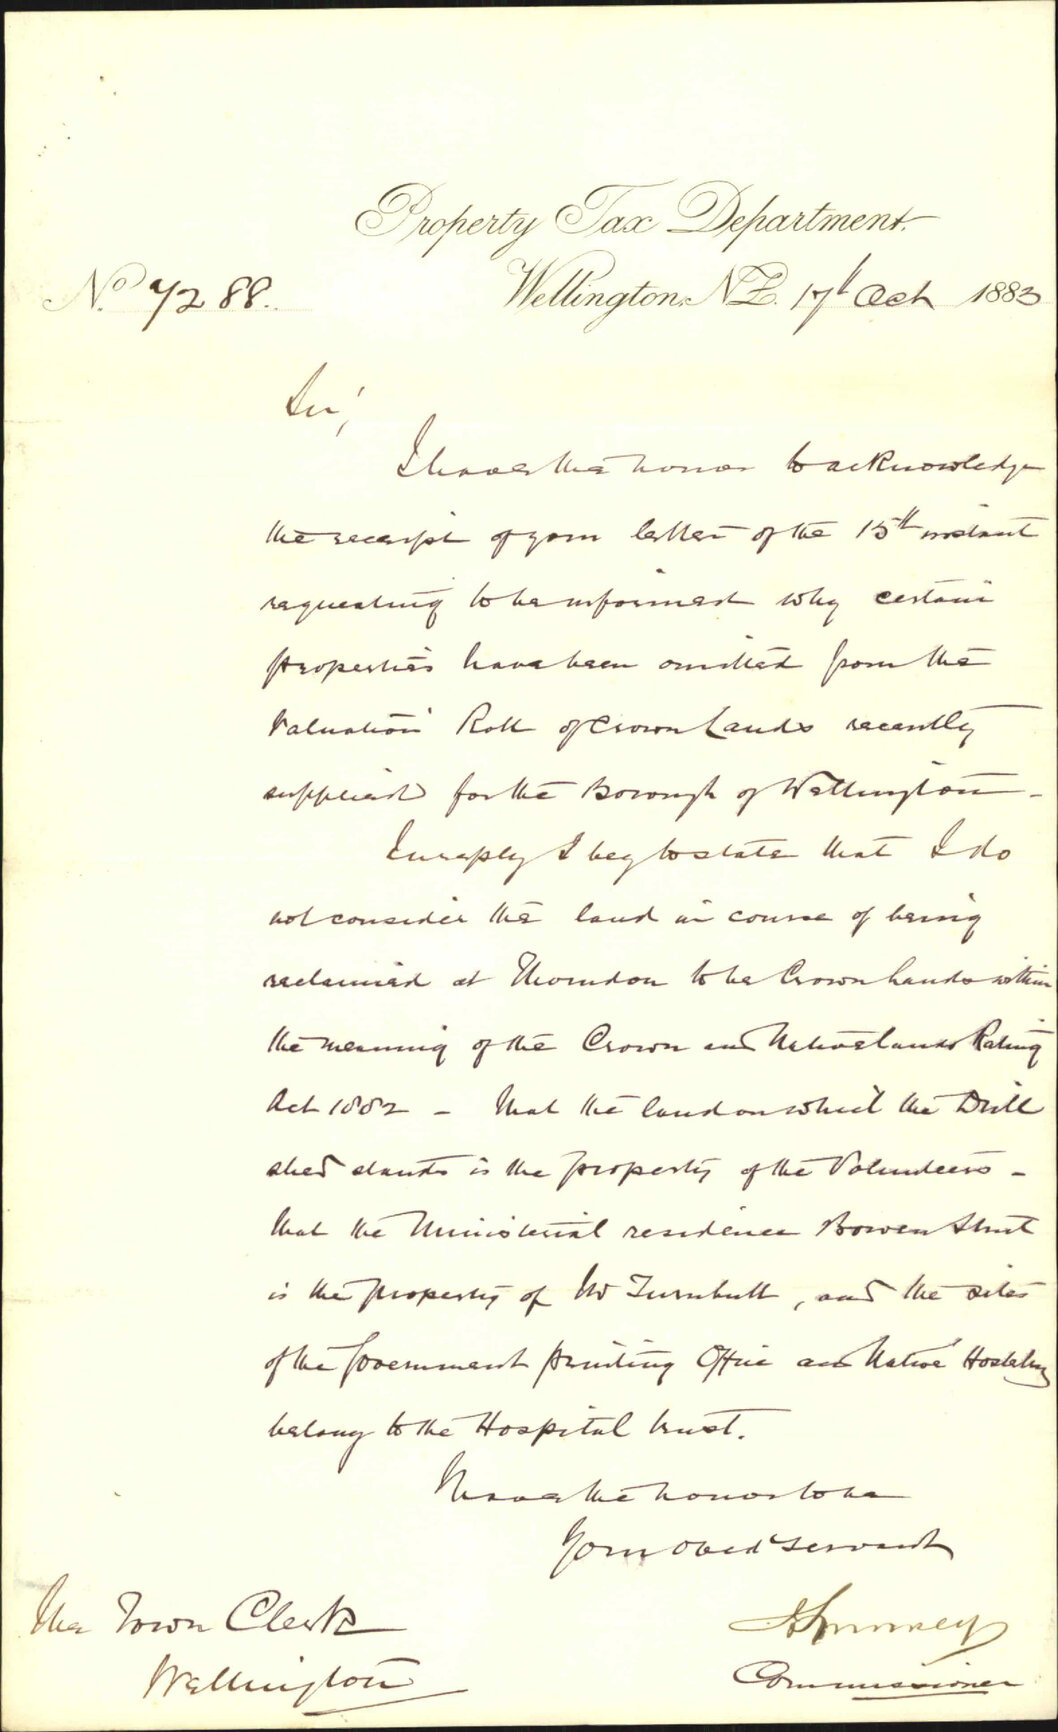 Property Tax Department.
No. 7288.
Wellington. N.Z. 17th Oct 1883
Sir,
I have the honor to acknowledge
the receipt of your letter of the 15th instant
requesting to be informed why certain
properties have been omitted from the
Valuation Roll of Crown Lands recently
supplied for the Borough of Wellington -
In reply I beg to state that I do
not consider the land in course of being
reclaimed at Thorndon to be Crown Lands within
the meaning of the Crown and Native Lands Rating
Act 1882 - that the land on which the Drill
shed stands is the property of the Volunteers -
that the Ministerial residence Bowen Street
is the property of Mr Turnbull, and the sites
of the Government Printing Office and Native Hostelry
belong to the Hospital trust.
I have the honor to be
Your obed servant
The Town Clerk
Wellington
Commissioner